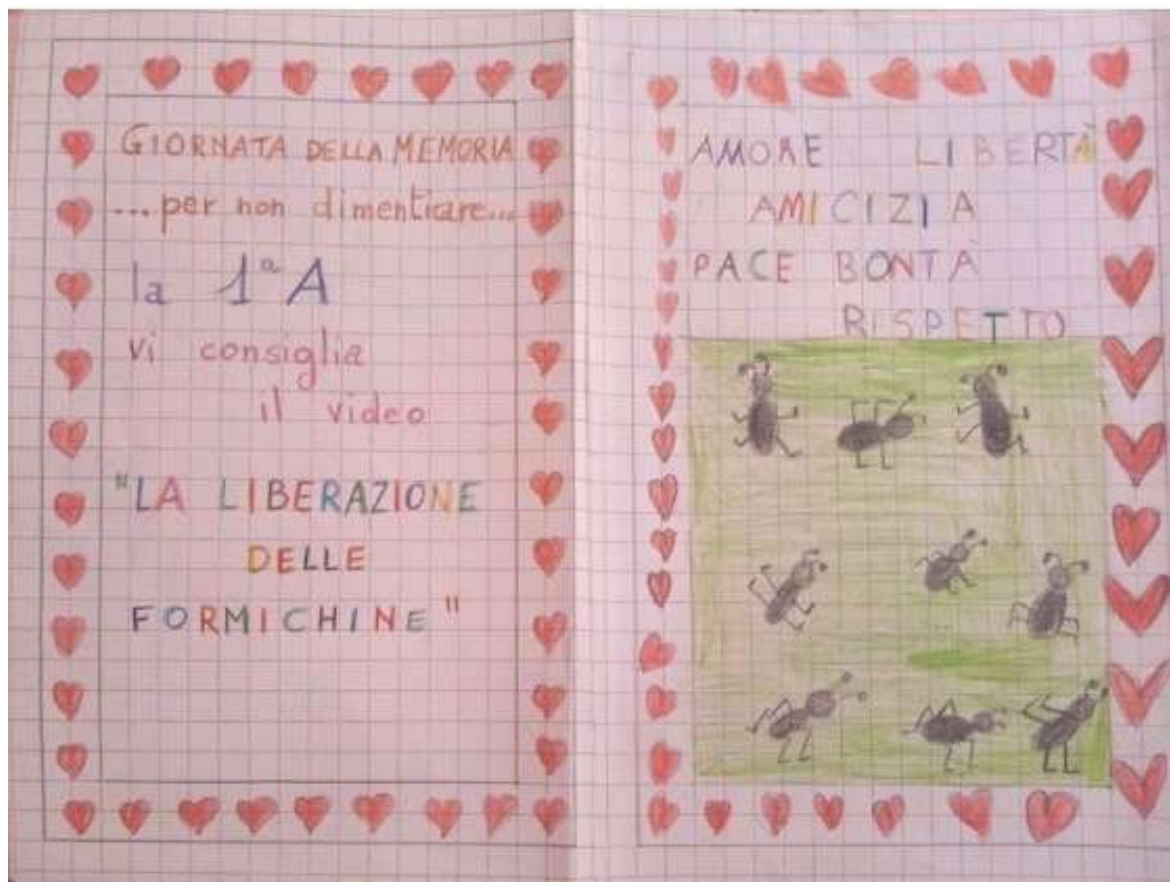 GIORNATA DELLA MEMORIA
...per non dimenticare...
la 1ª A
vi consiglia
il video
"LA LIBERAZIONE
DELLE
FORMICHINE"
AMORE LIBERTÀ
AMICIZIA
PACE BONTÀ
RISPETTO